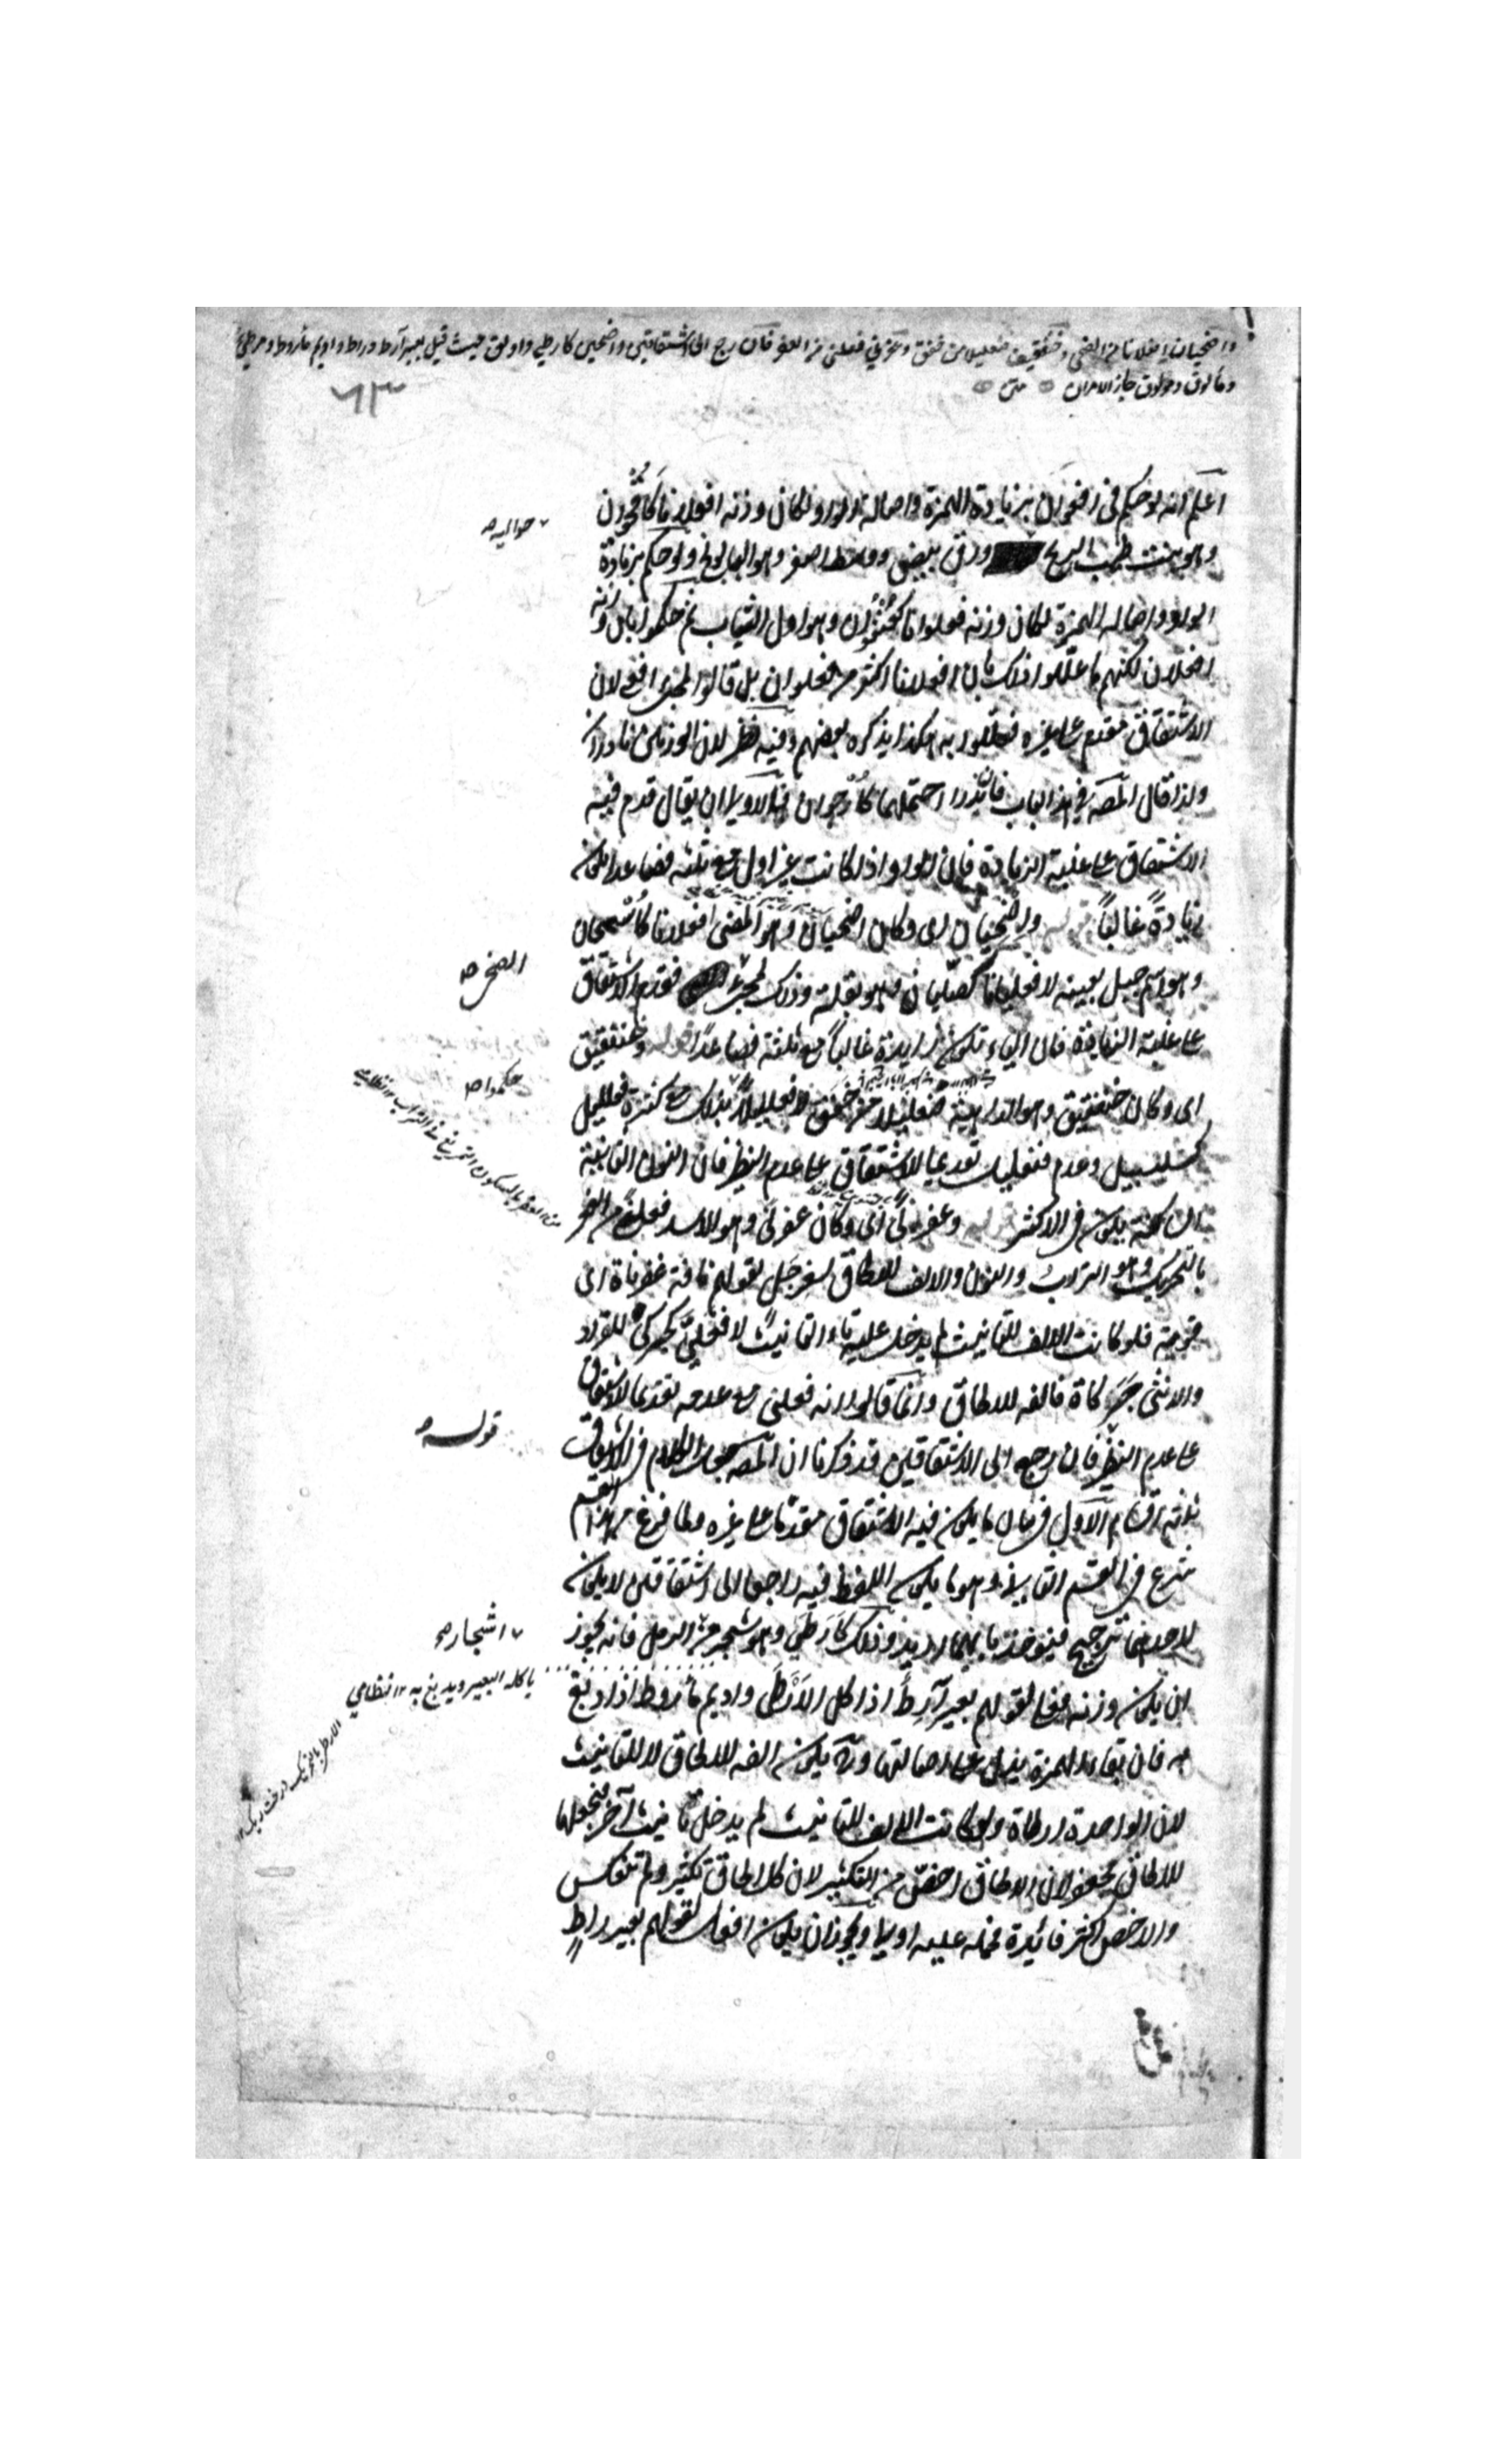 واضحيان افعلانا من الضحى وخنفقيق فنعليلا من خفق وعفرنى فعلنى من العفر فان رجع الى اشتقاقين واضحين كارطى واولق حيث قيل بعير آرط وراط واديم مأروط ومرطى
ومألوق ومولوق جاز الامران متن
٦٣
اعلم انه لو حكم فى افعوان بزيادة الهمزة واصالة الواو لكان وزنه افعلانا كأقحوان
وهو نبت طيب الريح حواليه ورق ابيض ووسطه اصفر وهو البابونج ولو حكم بزيادة
الواو واصالة الهمزة لكان وزنه فعلوانا كعنفوان وهو اول الشباب ثم حكموا بان وزنه
افعلان لكنهم ما عللوا ذلك بان افعلانا اكثر من فعلوان بل قالوا لمجئ افعى لان
الاشتقاق مقدم على غيره فعللوا به هكذا يذكره بعضهم وفيه نظر لان الوزنين نادران
ولذا قال المصـ فى هذا الباب فان ندرا احتملهما كأرجوان فالاولى ان يقال قدم فيه
الاشتقاق على غلبة الزيادة فان الواو اذا كانت غير اول مع ثلثة فصاعدا يكون
زيادة غالبا قوله واضحيان اى وكان اضحيان وهو المضئ افعلانا كأسحمان
وهو اسم جبل بعينه لا فعليانا كصليان وهو بقلة وذلك لمجئ الضحى فقدم الاشتقاق
على غلبة الزيادة فان الياء تكون زايدة غالبا مع ثلثة فصاعدا قوله وخنفقيق
اى وكان خنفقيق وهو الداهية فنعليلا من خفق لا فعلليلا حكموا بذلك مع كثرة فعلليل
كسلسبيل وعدم فنعليل تقديما للاشتقاق على عدم النظير فان النون الثانية
الساكنة يكون فى الاكثر قوله وعفرنى اى وكان عفرنى وهو الاسد فعلنى من العفر
بالتحريك وهو التراب والنون والالف للالحاق بسفرجل لقولهم ناقة عفرناة اى
قوية فلو كانت الالف للتانيث لم يدخل عليه تاء التانيث لا فعللى كحبركى للقراد
والانثى حبركاة فالفه للالحاق وانما قالوا انه فعلنى مع عدمه تقديما للاشتقاق
على عدم النظير قوله فان رجع الى الاشتقاقين قد ذكرنا ان المصـ جعل الكلام فى الاشتقاق
ثلثة اقسام الاول فى بيان ما يكون فيه الاشتقاق مقدما على غيره ولما فرغ من هذا القسم
شرع فى القسم الثانى وهو ما يكون اللفظ فيه راجعا الى اشتقاقين لا يكون
لاحدهما ترجيح فيؤخذ بايهما اريد وذلك كارطى وهو شجر من اشجار الرمل فانه يجوز
ان يكون وزنه فعلى لقولهم بعير آرط اذا اكل الارطى واديم مأروط اذا دبغ
به فان بقاء الهمزة يدل على اصالتها وح يكون الفه للالحاق لا للتانيث
لان الواحدة ارطاة ولو كانت الالف للتانيث لم يدخل تانيث آخر فجعلها
للالحاق لان الالحاق اخص من التكثير لان كل الحاق تكثير ولم تنعكس
والاخص اكثر فائدة فحمله عليه اولى ويجوز ان يكون افعل لقولهم بعير راط
حواليه صح
الضحى صح
حكموا صح
من العفر بالسكون التمريغ فى التراب ١٢ نظامى
قوله صح
اشجار صح
ياكله البعير ويدبغ به ١٢ نظامى